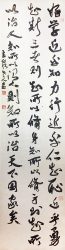 好學近乎知力行近乎仁知恥近乎勇
知斯三者則知所以修身知所以修身則知
所以治人知所以治人則知所以治天下國家矣